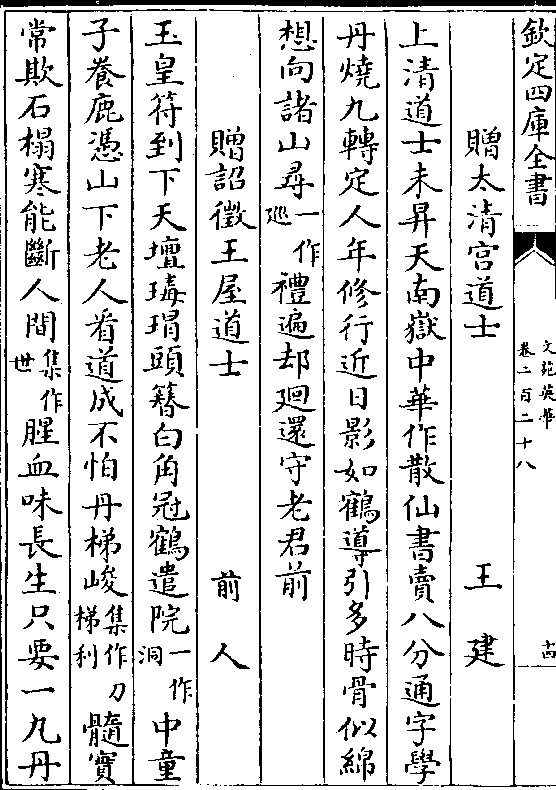 欽定四庫全書
文苑英華
卷二百二十八
十四
贈太清宫道士 王建
上清道士未昇天南嶽中華作散仙書賣八分通字學
丹燒九轉定人年修行近日影如鶴導引多時骨似綿
想向諸山尋一作廵禮遍却廻還守老君前
贈詔徵王屋道士 前人
玉皇符到下天壇瑇瑁頭簪白角冠鶴遣院一作洞中童
子養鹿憑山下老人看道成不怕丹梯峻集作刀梯利髓實
常欺石榻寒能斷人間集作世腥血味長生只要一丸丹